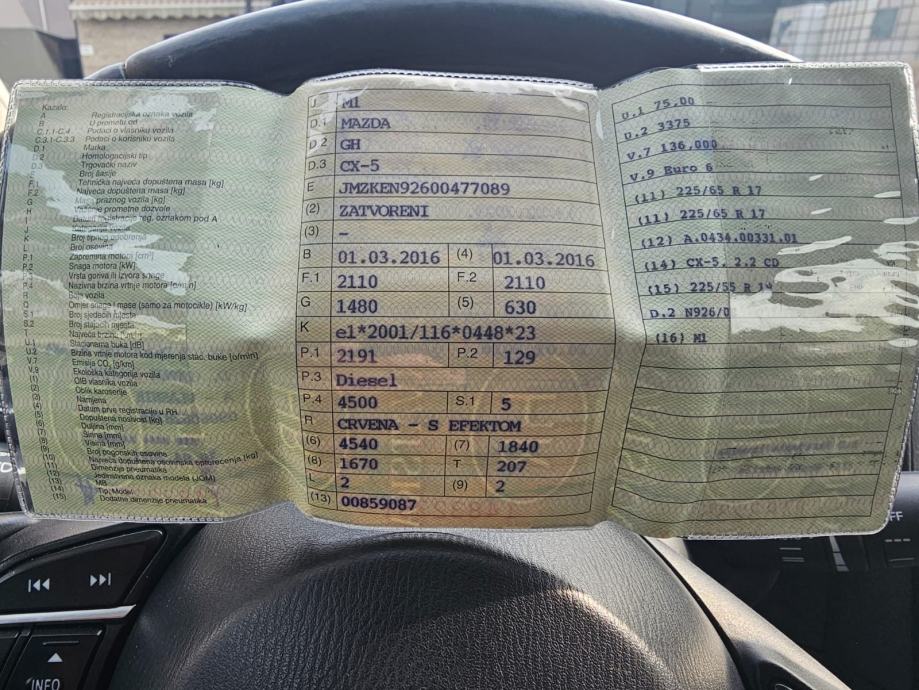 Kazalo:
A Registracijska oznaka vozila
B U prometu od
C.1.1-C.4 Podaci o vlasniku vozila
C.3.1-C.3.3 Podaci o korisniku vozila
D.1 Marka
D.2 Homologacijski tip
D.3 Trgovački naziv
E Broj šasije
F.1 Tehnička najveća dopuštena masa [kg]
F.2 Najveća dopuštena masa [kg]
G Masa praznog vozila [kg]
H Važenje prometne dozvole
I Datum registracije reg. oznakom pod A
J Kategorija vozila
K Broj tipnog odobrenja
L Broj osovina
P.1 Zapremina motora [cm³]
P.2 Snaga motora [kW]
P.3 Vrsta goriva ili izvora snage
P.4 Nazivna brzina vrtnje motora [o/min]
R Boja vozila
Q Omjer snage i mase (samo za motocikle) [kW/kg]
S.1 Broj sjedećih mjesta
S.2 Broj stajaćih mjesta
Najveća brzina [km/h]
U.1 Stacionarna buka [dB]
U.2 Brzina vrtnje motora kod mjerenja stac. buke [o/min]
V.7 Emisija CO₂ [g/km]
V.9 Ekološka kategorija vozila
(1) OIB vlasnika vozila
(2) Oblik karoserije
(3) Namjena
(4) Datum prve registracije u RH
(5) Dopuštena nosivost [kg]
(6) Duljina [mm]
(7) Širina [mm]
(8) Visina [mm]
(9) Broj pogonskih osovina
(10) Najveća dopuštena osovinska opterećenja [kg]
(11) Dimenzije pneumatika
(12) Jedinstvena oznaka modela (JOM)
(13) MB
(14) Tip; Model
(15) Dodatne dimenzije pneumatika
J M1
D.1 MAZDA
D.2 GH
D.3 CX-5
E JMZKEN92600477089
(2) ZATVORENI
(3) –
B 01.03.2016 (4) 01.03.2016
F.1 2110 F.2 2110
G 1480 (5) 630
K e1*2001/116*0448*23
P.1 2191 P.2 129
P.3 Diesel
P.4 4500 S.1 5
R CRVENA - S EFEKTOM
(6) 4540 (7) 1840
(8) 1670 T 207
L 2 (9) 2
(13) 00859087
U.1 75,00
U.2 3375
V.7 136,000
V.9 Euro 6
(11) 225/65 R 17
(11) 225/65 R 17
(12) A.0434.00331.01
(14) CX-5, 2.2 CD
(15) 225/55 R 19
D.2 N926/0
(16) M1
INFO